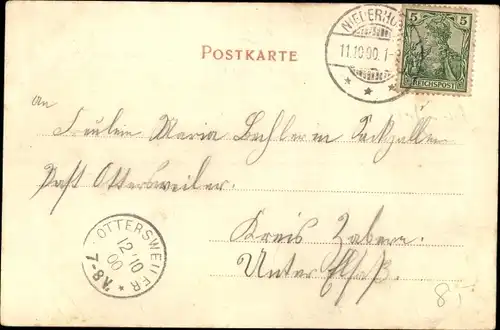 POSTKARTE
NIEDERHO
11.10.00. 1-
5 5
REICHSPOST
An
Fräulein Maria Bechler in
Post Ottersweiler.
Kreis Zabern
Unter Elsaß.
OTTERSWEILER
12 10
00
7-8 V.
8,-